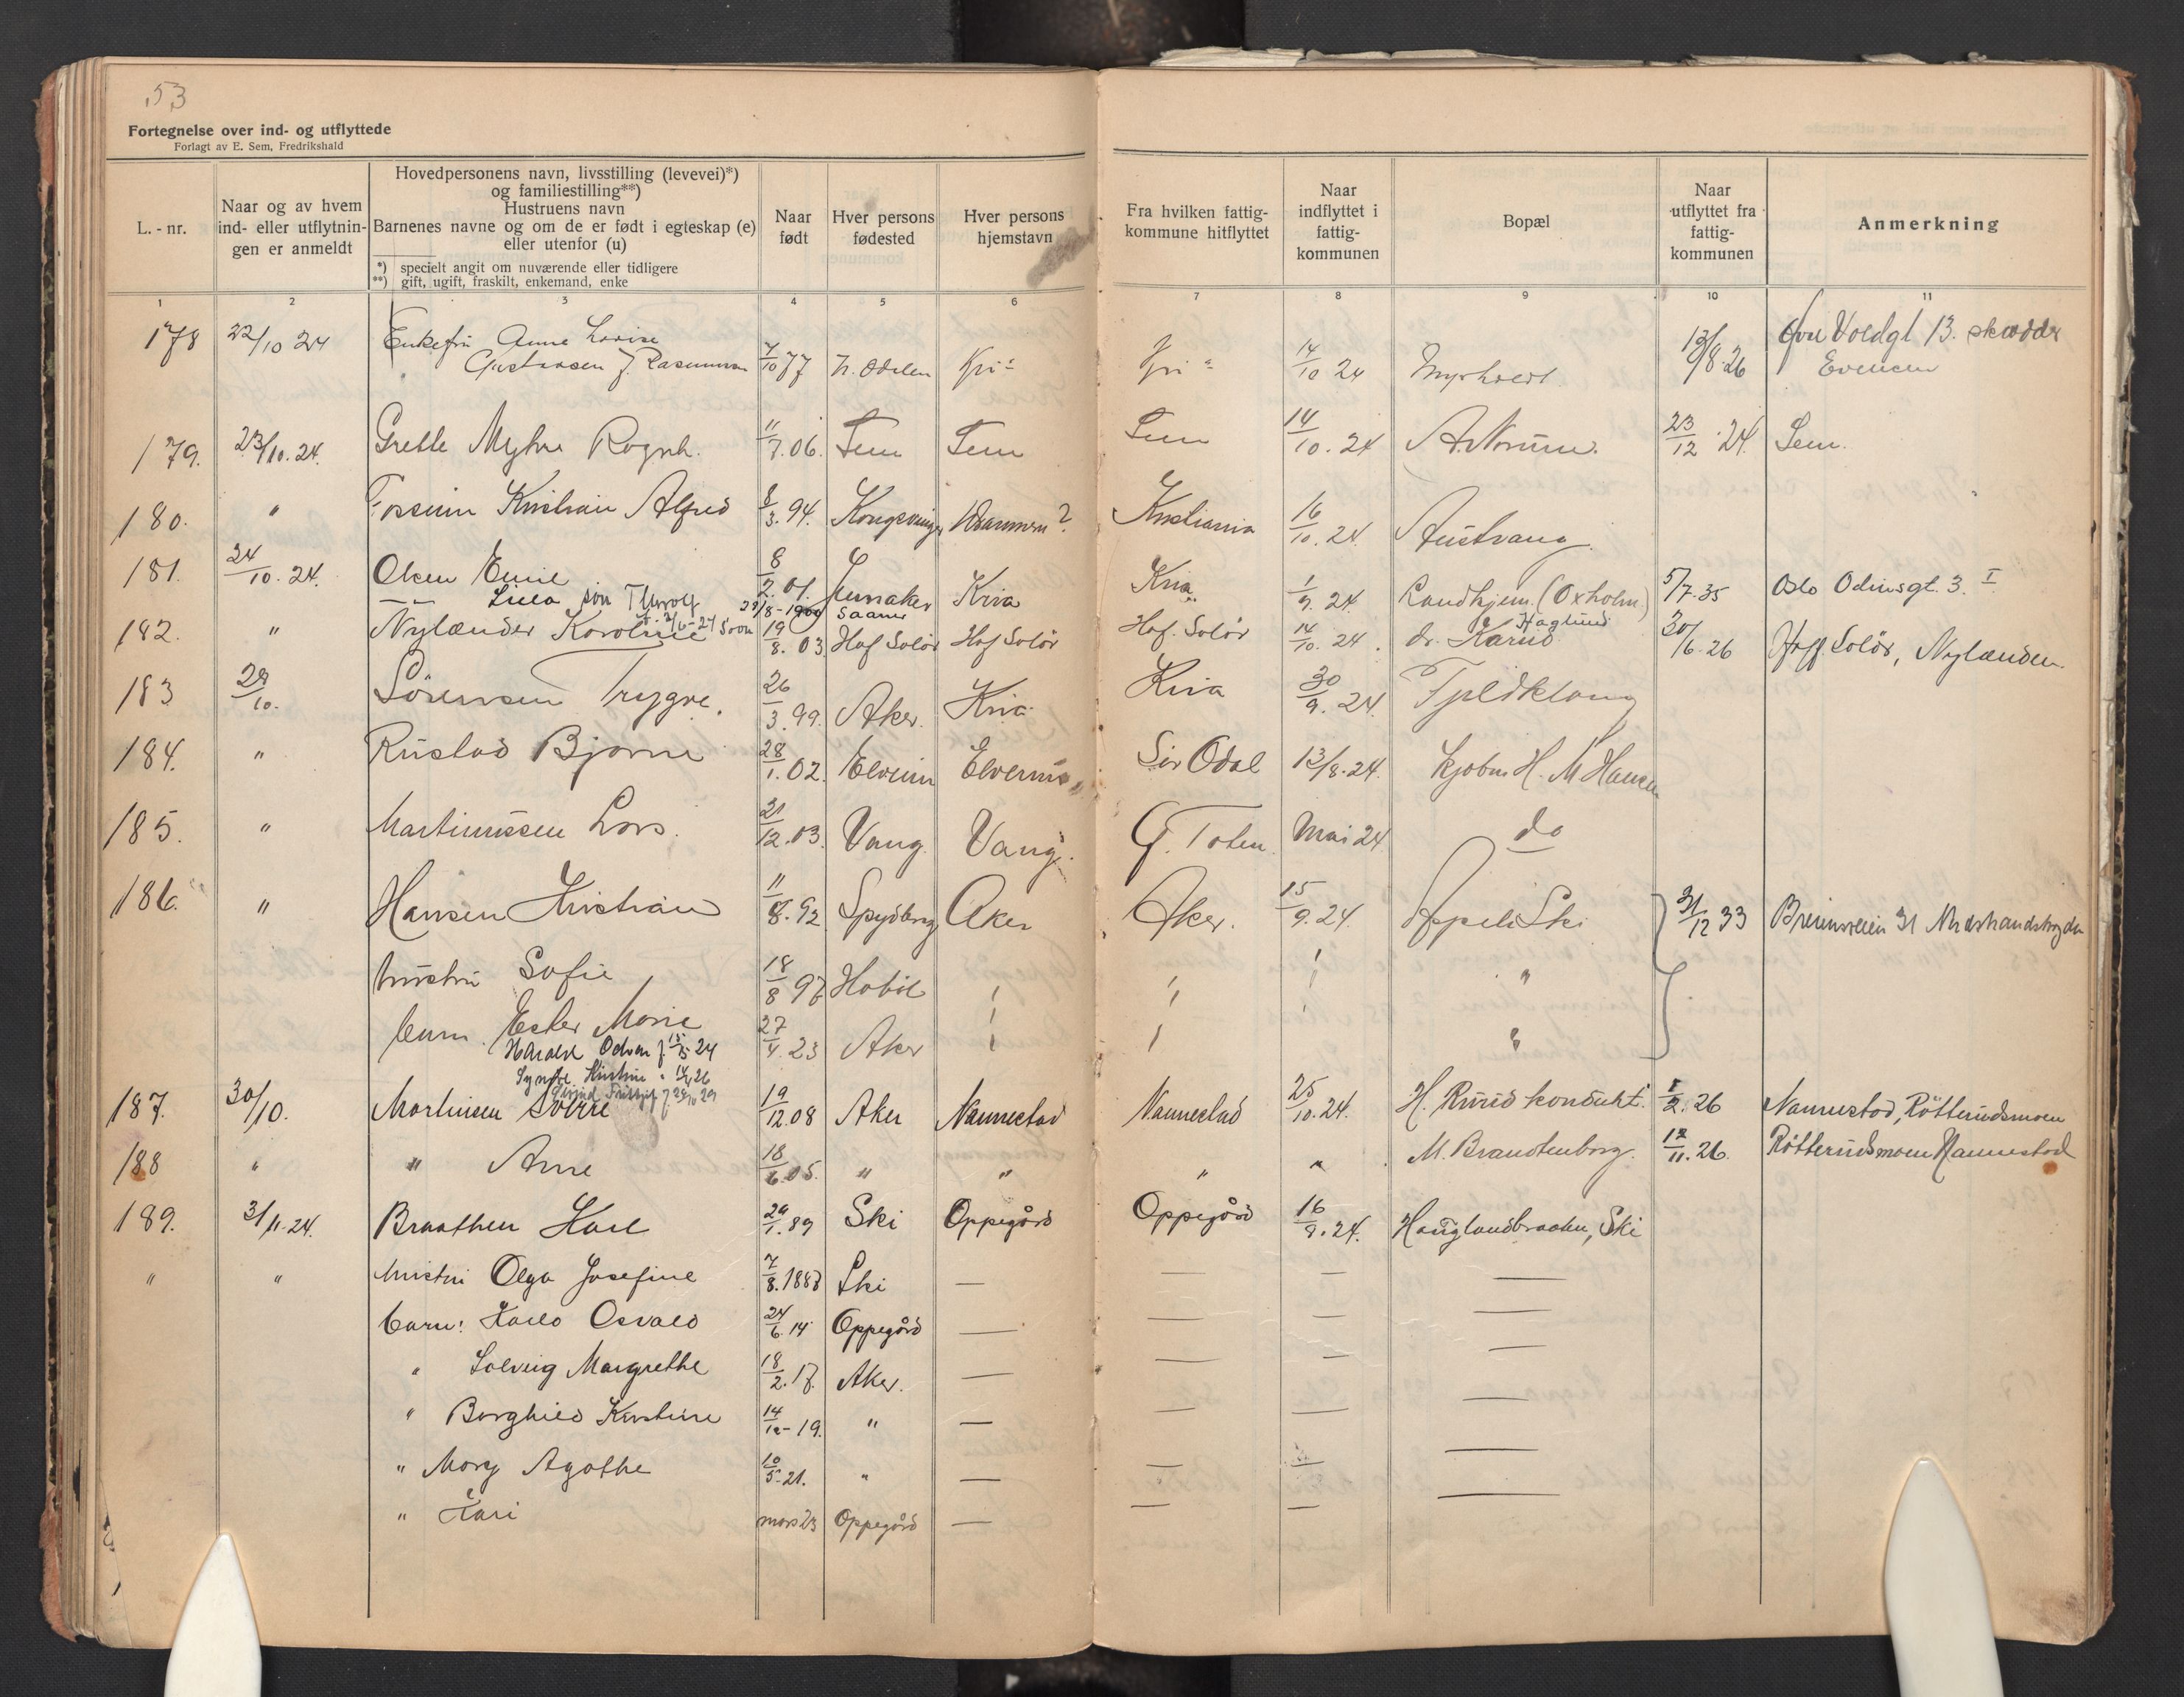 53
Fortegnelse over ind- og utflyttede
Forlagt av E. Sem, Fredrikshald
L.-nr.
Naar og av hvem ind- eller utflytnin-gen er anmeldt
Hovedpersonens navn, livsstilling (levevei)*)
og familiestilling**)
Hustruens navn
Barnenes navne og om de er født i egteskap (e)
eller utenfor (u)
*) specielt angit om nuværende eller tidligere
**) gift, ugift, fraskilt, enkemand, enke
Naar født
Hver persons fødested
Hver persons hjemstavn
Fra hvilken fattig-kommune hitflyttet
Naar indflyttet i fattig-kommunen
Bopæl
Naar utflyttet fra fattig-kommunen
Anmerkning
1 2 3 4 5 6 7 8 9 10 11
178 22/10 24 Enkefru Anna Lovise 14/10 24 13/8.26 Øvre Voldgt 13. skrædder
Gustavsen f. Rasmussen 7/10 77 N. Odalen Kri- Kri- Myrhvert Evensen
179. 23/10.24. Grette Myhre Ragnh. 11/7.06. Sem Sem Sem 14/10.24 A. Norum. 23/12.24. Sem.
180. " Fossum Kristian Alfred 8/3.94. Kongsvinger Drammen? Kristiania 16/10.24. Austvang
181. 24/10.24. Olsen Emil 8/2.01. Jevnaker Kria Kria. 1/9.24. Randhjem. (Oxholm) 5/7.35 Oslo Odinsgt. 3. I
29/8-1900 Saaner
182. " Nylænder Karoline 19/8.03 Hof Solör Hof Solör Hof. Solör 14/10.24. dr. Karud Haglund 30/6.26 Hoff. Solör, Nylænden
183 29/10. Sörensen Trygve. 26/3.99. Aker. Kria Kria 30/9.24. Fjeldklang
184. " Rustad Bjarne 28/1.02. Elverum Elverum Sör Odal 13/8.24. Kjøbm H. M Hansen
185. " Martinussen Lars. 21/12.03. Vang. Vang. Ö. Toten. Mai 24 do
186. " Hansen Kristian 11/8.92 Spydberg Aker Aker. 15/9.24. Appels Ski 31/12 33 Breiensveien 31 Nordstrandshøgda
hustru Sofie 18/8 97 Hobøl " " " "
barn. Ester Marie 27/4.23 Aker " " "
Harald Odvar f. 15/5 24
Synöve Kirstine " 14/4 26
187. 30/10. Martinsen Sverre 19/12.08 Aker Nannestad Nannestad 25/10.24. H. Ruud kondukt. 1/2.26 Nannestad, Rötterudsmoen
188 " " Arne 18/6.05. " " " " M. Brandtenborg. 12/11.26. Rötterudsmoen Nannestad
189. 3/11.24. Braathen Karl 29/1.89 Ski Oppegård Oppegård 16/9.24. Hauglandbraaten, Ski
" " hustru Olga Josefine 7/8.1887 Ski — — — —
barn: Karlo Osvald 24/6.14 Oppegård — — — —
" Solveig Margrethe 18/2.17. Aker. — — — —
" Borghild Kirstine 14/12-19. " — — — —
" Mary Agathe 10/5-21. " — — — —
" Kari mars 23 Oppegård — — — —